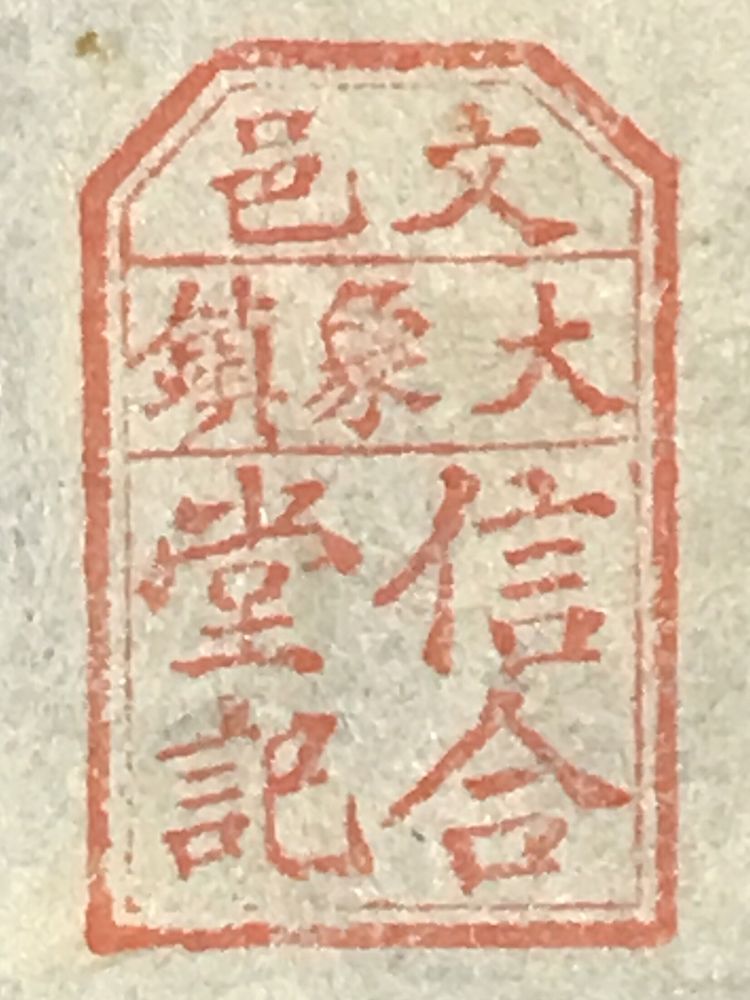 文邑
大象鎮
信合
堂記